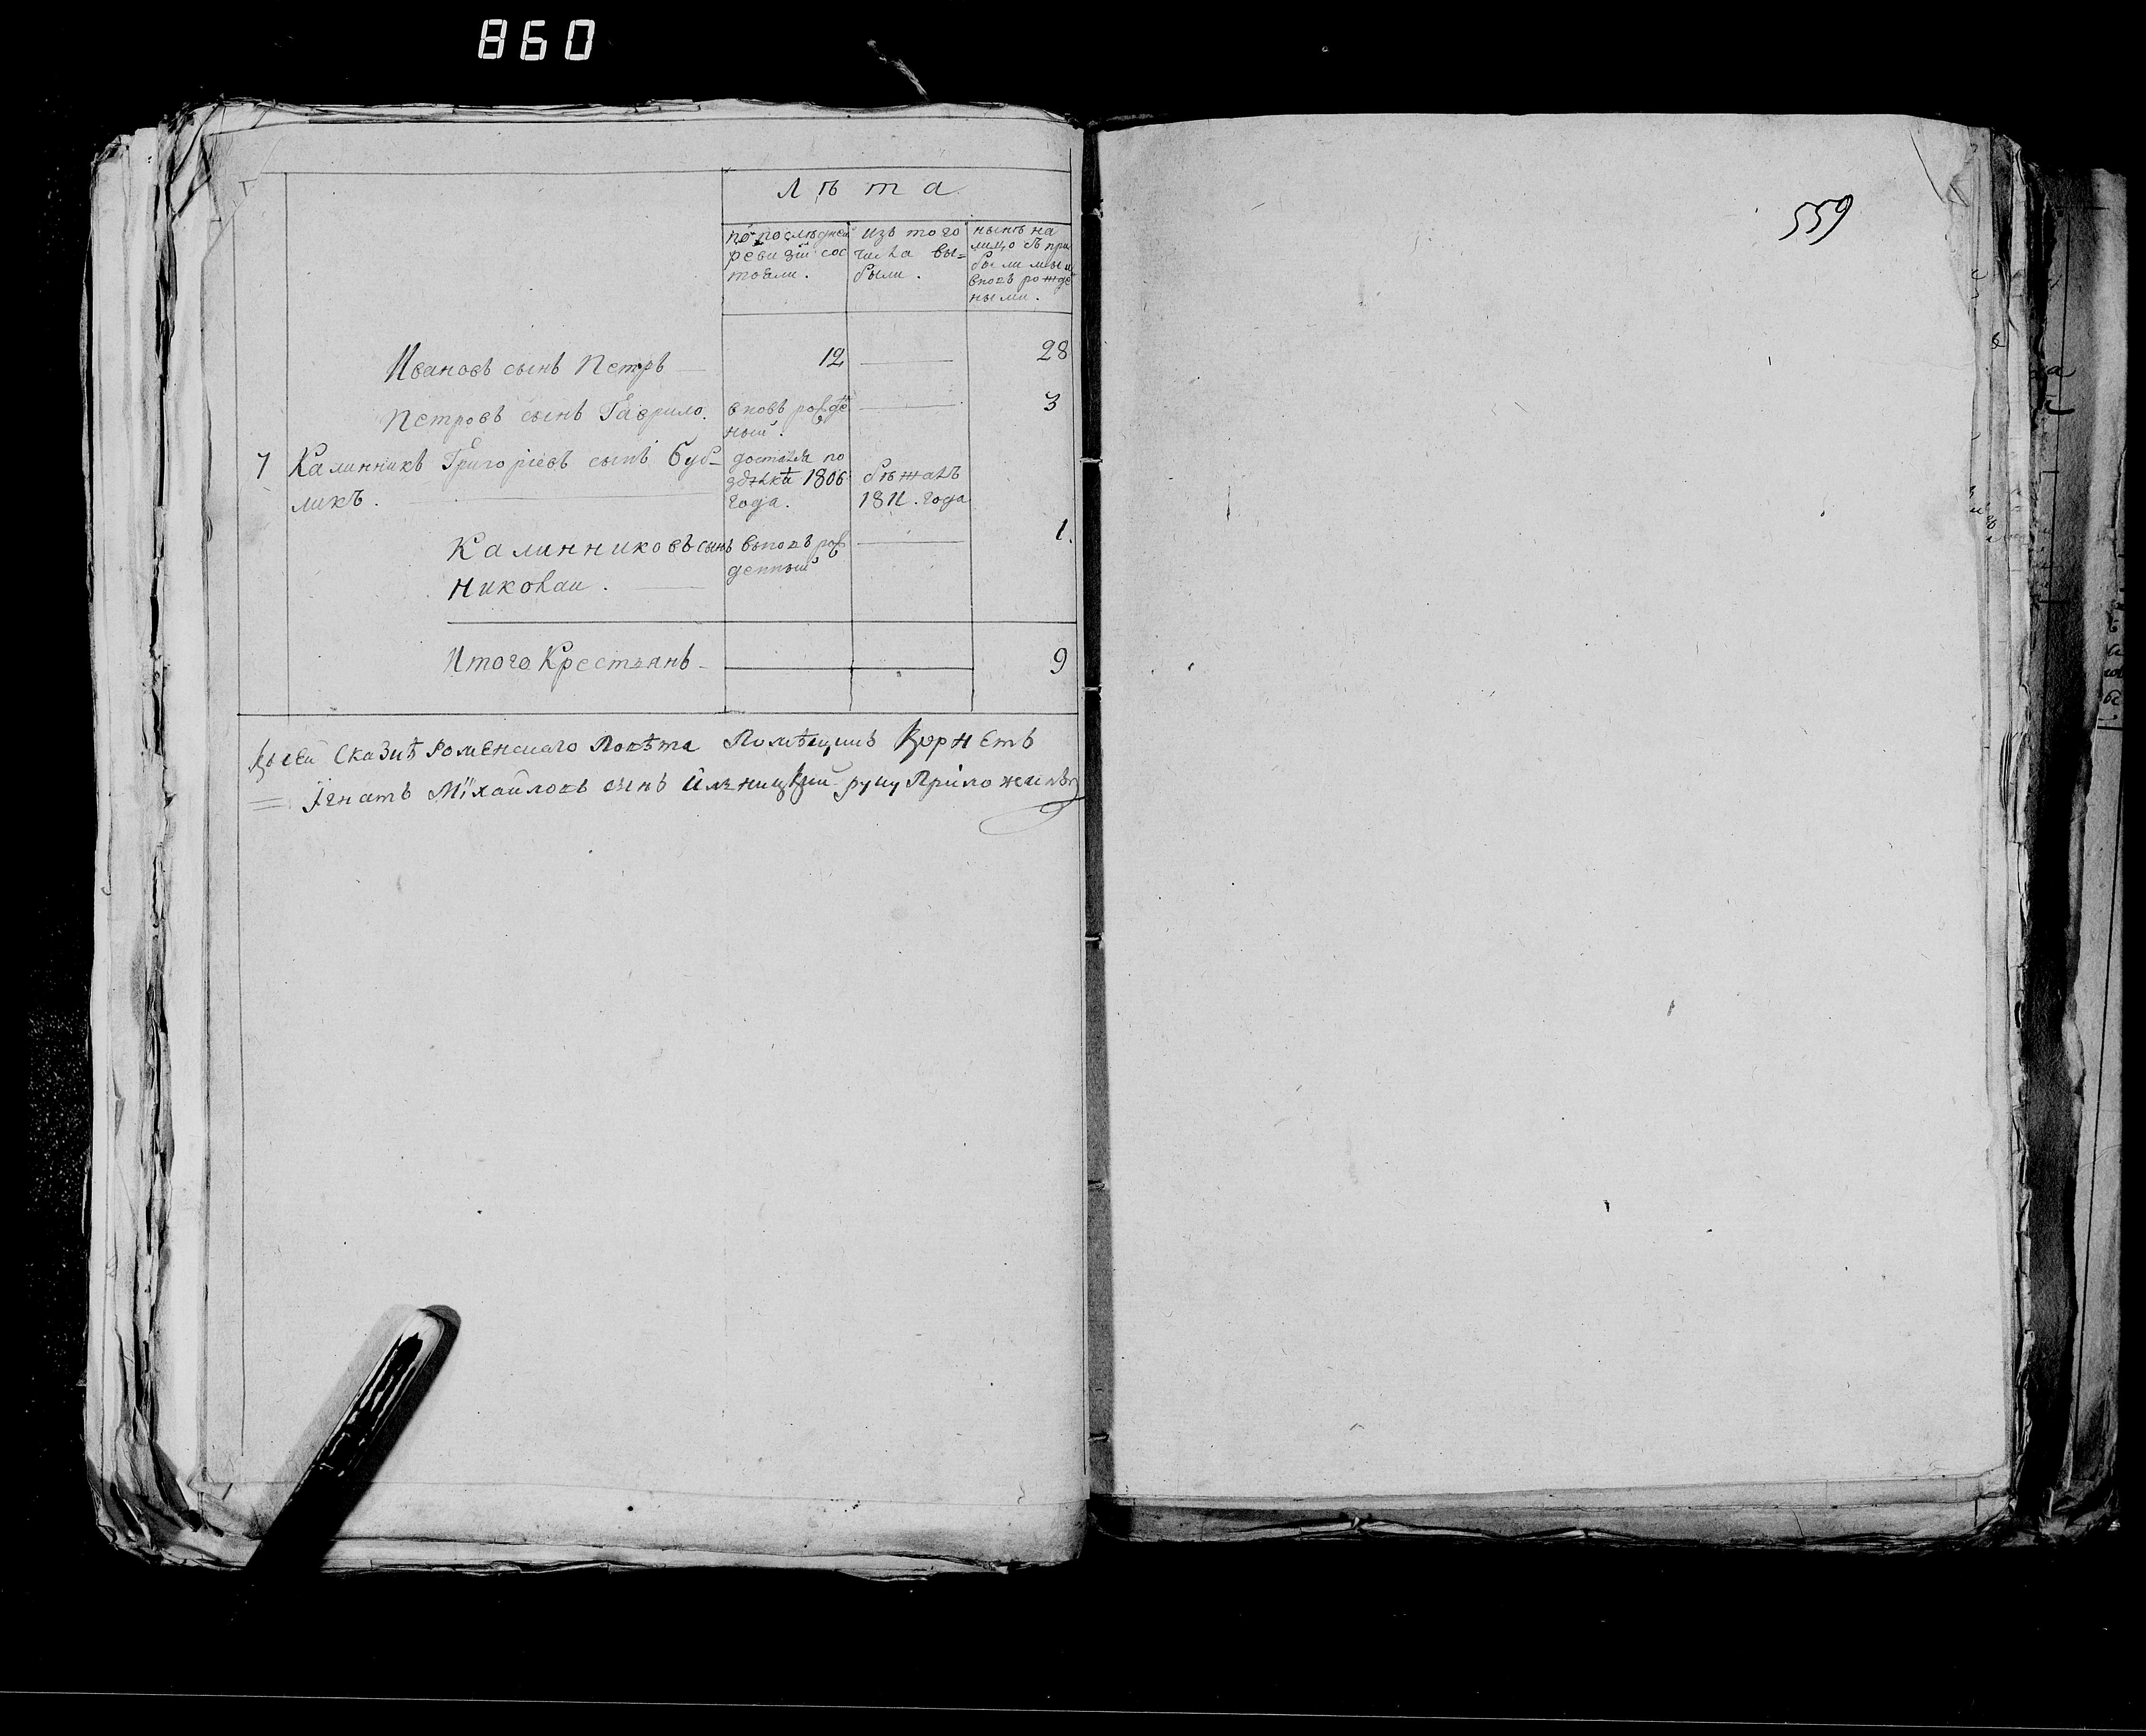 860
559
Лѣта
по послѣдней
ревизіи сос
тояли.
изъ того
числа вы=
были.
нынѣ на
лицо съ при
былыми и
вновь рожде
ными.
Ивановъ сынъ Петръ 12 28
Петровъ сынъ Гаврило. вновь рожде 3
ный.
7 Калинникъ Григоріевъ сынъ Буб-
ликъ.
достался по
1806
года.
бѣжалъ
1811. года
Калинниковъ сынъ вновь рож 1.
Николай. денный
Итого Крестьянъ 9
Къ сей Сказкѣ Роменскаго Повѣта Помѣщикъ Корнетъ
= Ігнатъ Міхайловъ сынъ руку Приложилъ